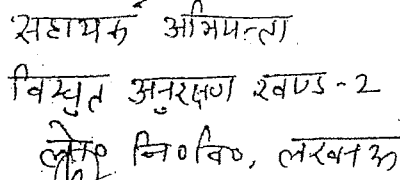 सहायक अभियन्ता
विद्युत अनुरक्षण खण्ड - 2
लो० नि० वि०, लखनऊ